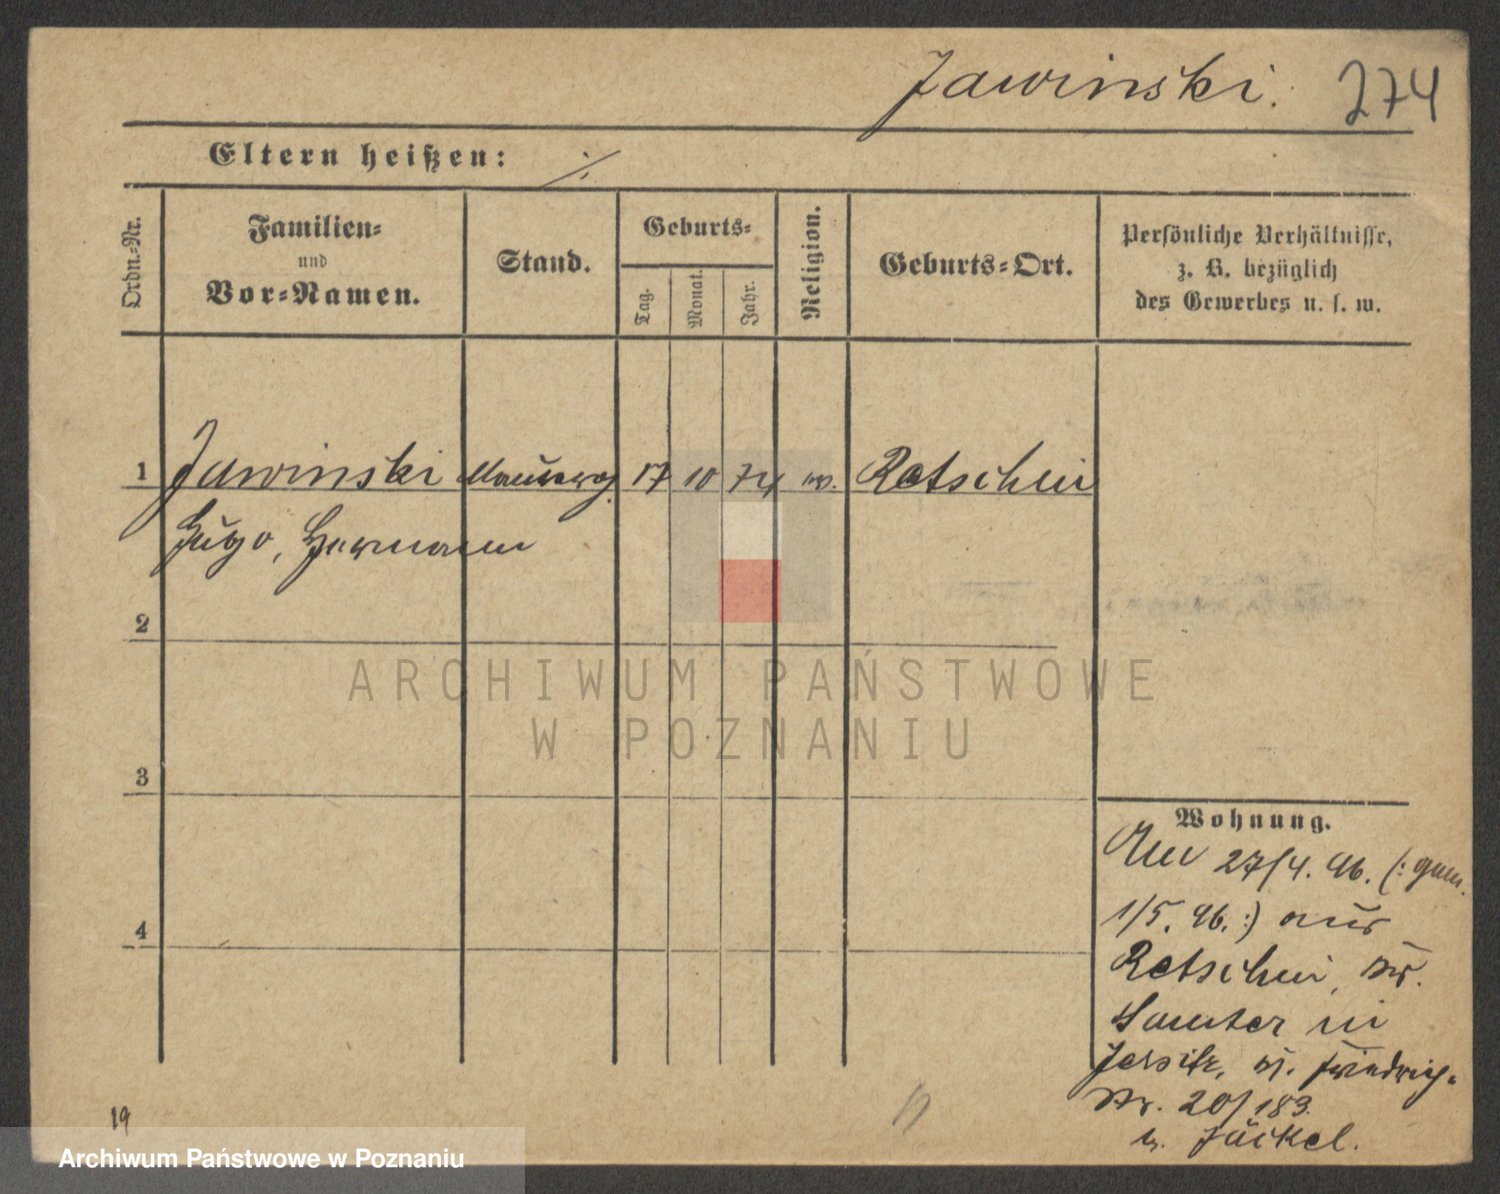 Jawinski. 274
Eltern heißen: ./.
Ordn.-Nr.
Familien-
und
Vor-Namen.
Stand.
Geburts-
Tag.
Monat.
Jahr.
Religion.
Geburts-Ort.
Persönliche Verhältnisse,
z. B. bezüglich
des Gewerbes u. s. w.
1 Jawinski 17 10 74 Retschin
Hugo, Hermann
2
ARCHIWUM PAŃSTWOWE
W POZNANIU
3
Wohnung.
27/4. 96. (: gem.
1/5. 96. :) aus
4
Retschin, Kr.
Samter in
Jersitz, Friedrich-
Str. 20/183.
b. Jäckel.
19
Archiwum Państwowe w Poznaniu